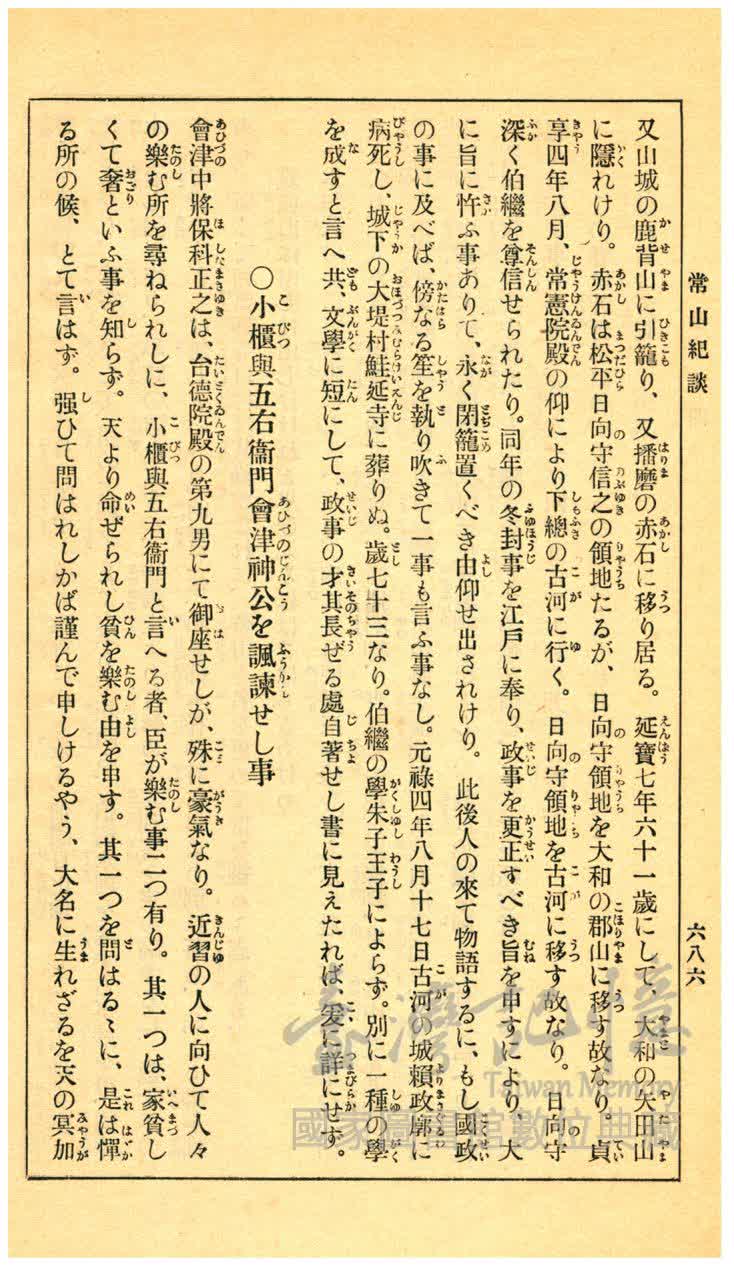 常山紀談
六八六
又山城の鹿背山に引籠り、又播磨の赤石に移り居る。延寶七年六十一歲にして、大和の矢田山
に隱れけり。赤石は松平日向守信之の領地たるが、日向守領地を大和の郡山に移す故なり。貞
享四年八月、常憲院殿の仰により下總の古河に行く。日向守領地を古河に移す故なり。日向守
深く伯繼を尊信せられたり。同年の冬封事を江戶に奉り、政事を更正すべき旨を申すにより、大
に旨に忤ふ事ありて、永く閉籠置くべき由仰せ出されけり。此後人の來て物語するに、もし國政
の事に及べば、傍なる笙を執り吹きて一事も言ふ事なし。元祿四年八月十七日古河の城賴政廓に
病死し、城下の大堤村鮭延寺に葬りぬ。歲七十三なり。伯繼の學朱子王子によらず。別に一種の學
を成すと言へ共、文學に短にして、政事の才其長ぜる處自著せし書に見えたれば、爰に詳にせず。
〇小櫃與五右衞門會津神公を諷諫せし事
會津中將保科正之は、台德院殿の第九男にて御座せしが、殊に豪氣なり。近習の人に向ひて人々
の樂む所を尋ねられしに、小櫃與五右衞門と言へる者、臣が樂む事二つ有り。其一つは、家貧し
くて奢といふ事を知らず。天より命ぜられし貧を樂む由を申す。其一つを問はるゝに、是は憚
る所の候、とて言はず。强ひて問はれしかば謹んで申しけるやう、大名に生れざるを天の冥加
臺灣記憶
Taiwan Memory
國家圖書館數位典藏